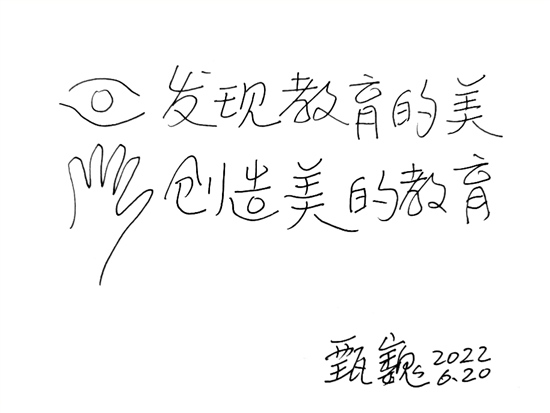 发现教育的美
创造美的教育
甄巍 2022
6.20